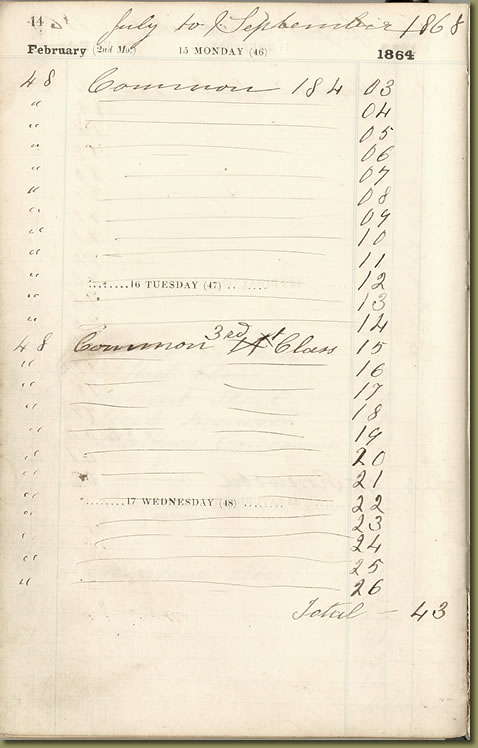 14 July to September 1868
February (2nd Mo.) 15 MONDAY (46) 1864
48 Common 184 03
" 04
" 05
" 06
" 07
" 08
" 09
" 10
" 11
" 12
16 TUESDAY (47)
" 13
" 14
48 Common 3rd Class 15
" 16
" 17
" 18
" 19
" 20
" 21
" 22
17 WEDNESDAY (48)
" 23
" 24
" 25
" 26
Total — 43